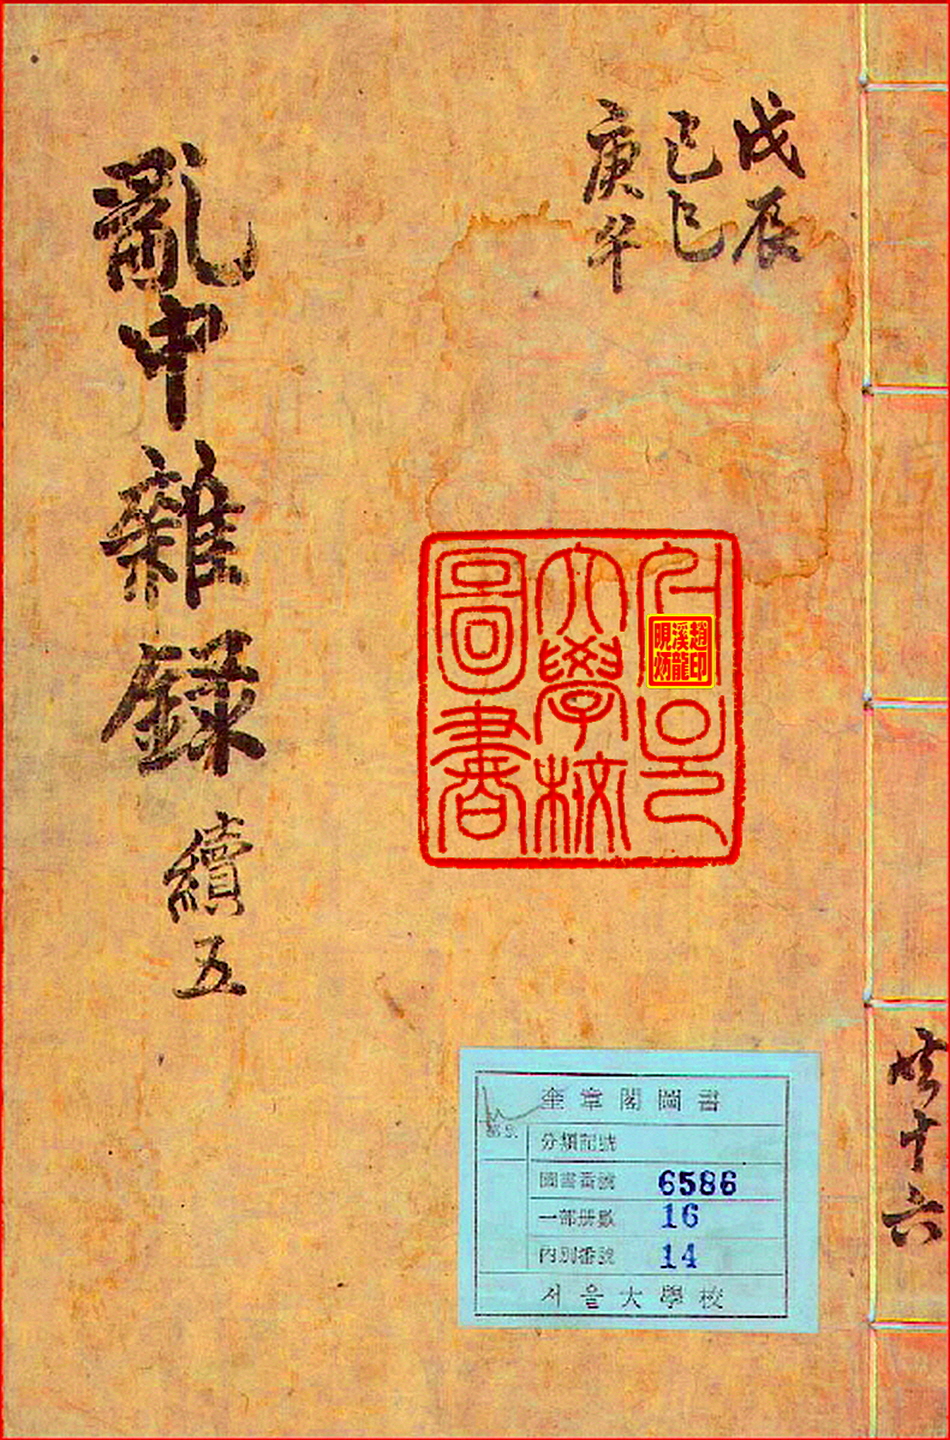 戊辰
己巳
庚午
亂中雜錄 續五
서울
大學校
圖書
趙印
溪龍
奎章閣圖書
分類記號
圖書番號 6586
一部冊數 16
內別番號 14
서울大學校
共十六